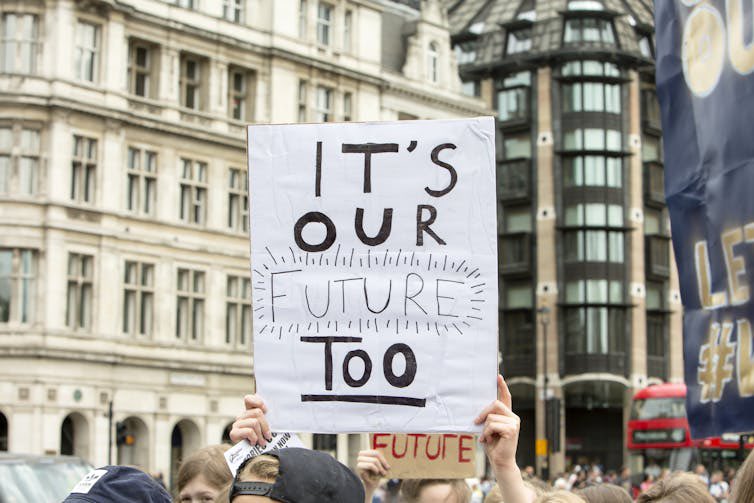 IT'S
OUR
FUTURE
TOO
FUTURE
NOW
LE
#